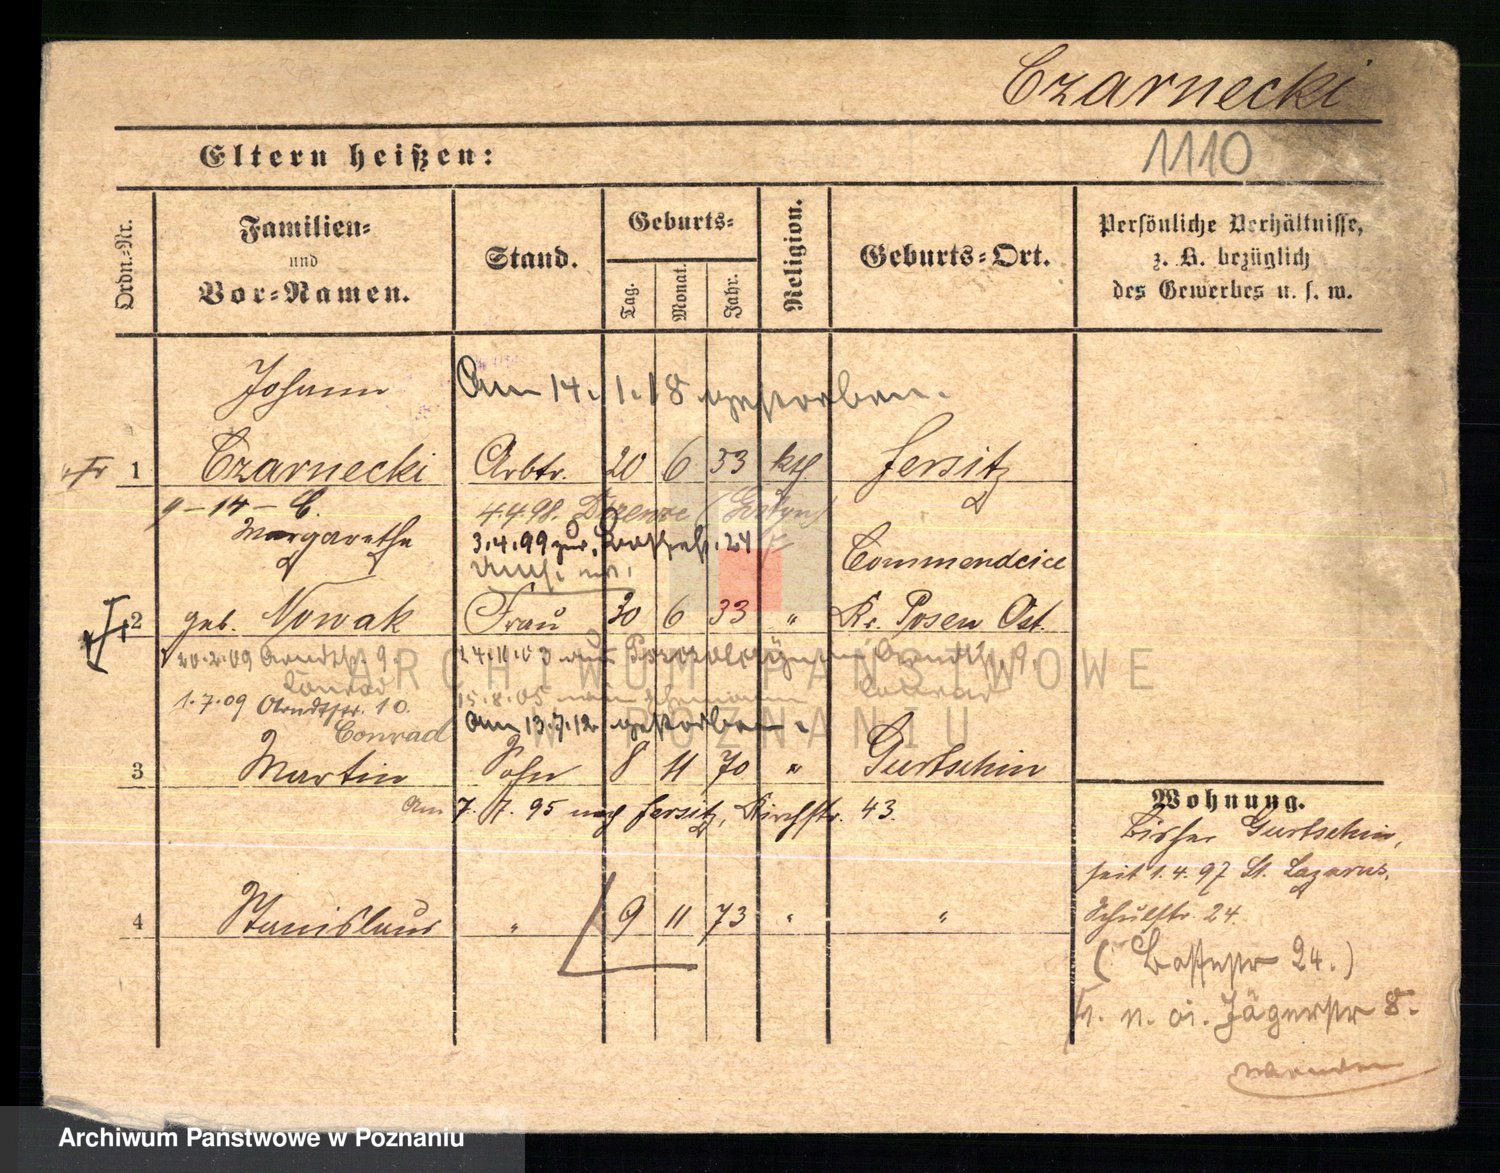 Czarnecki
1110
Eltern heißen:
Ordn.-Nr.
Familien-
und
Vor-Namen.
Stand.
Geburts-
Tag.
Monat.
Jahr.
Religion.
Geburts-Ort.
Persönliche Verhältnisse,
z. B. bezüglich
des Gewerbes u. s. w.
Johann
Am 14. 1. 18 gestorben.
1 Czarnecki Arbtr. 20 6 33 kth Jersitz
9-14-C.
Margarethe
4.4.98.
3.4.99 zur. 24
Commenderie
2 geb. Nowak Frau 30 6 33 " Kr. Posen Ost.
20.2.09 Arndtstr. 9.
Conrad
24.11.03 aus Arndtstr. 9.
1.7.09 Arndtstr. 10.
Conrad
15.8.05 Conrad
Am 13.7.12 gestorben.
3 Martin Sohn 8 11 70 " Gurtschin
Am 7. 7. 95 nach Jersitz, Kirchstr. 43.
4 Stanislaus " 9 11 73 " "
Wohnung.
Bisher Gurtschin,
seit 1.4.97 St. Lazarus,
Schulstr. 24.
24.)
Jägerstr 8.
ARCHIWUM PAŃSTWOWE
W POZNANIU
Archiwum Państwowe w Poznaniu